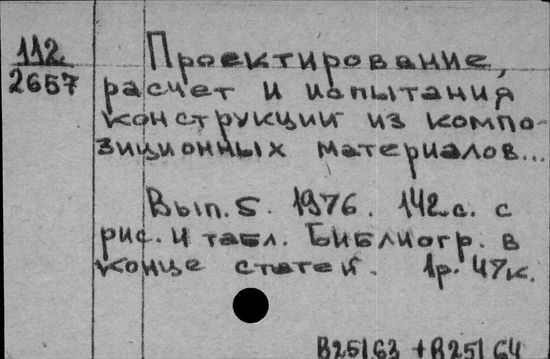 112
2657
Проектирование,
расчет и испытания
конструкции из компо-
зиционных материалов...
Вып. 5. 1976. 142 с. с
рис. и табл. Библиогр. в
конце статей. 1р. 47к.
В25163 + В25164